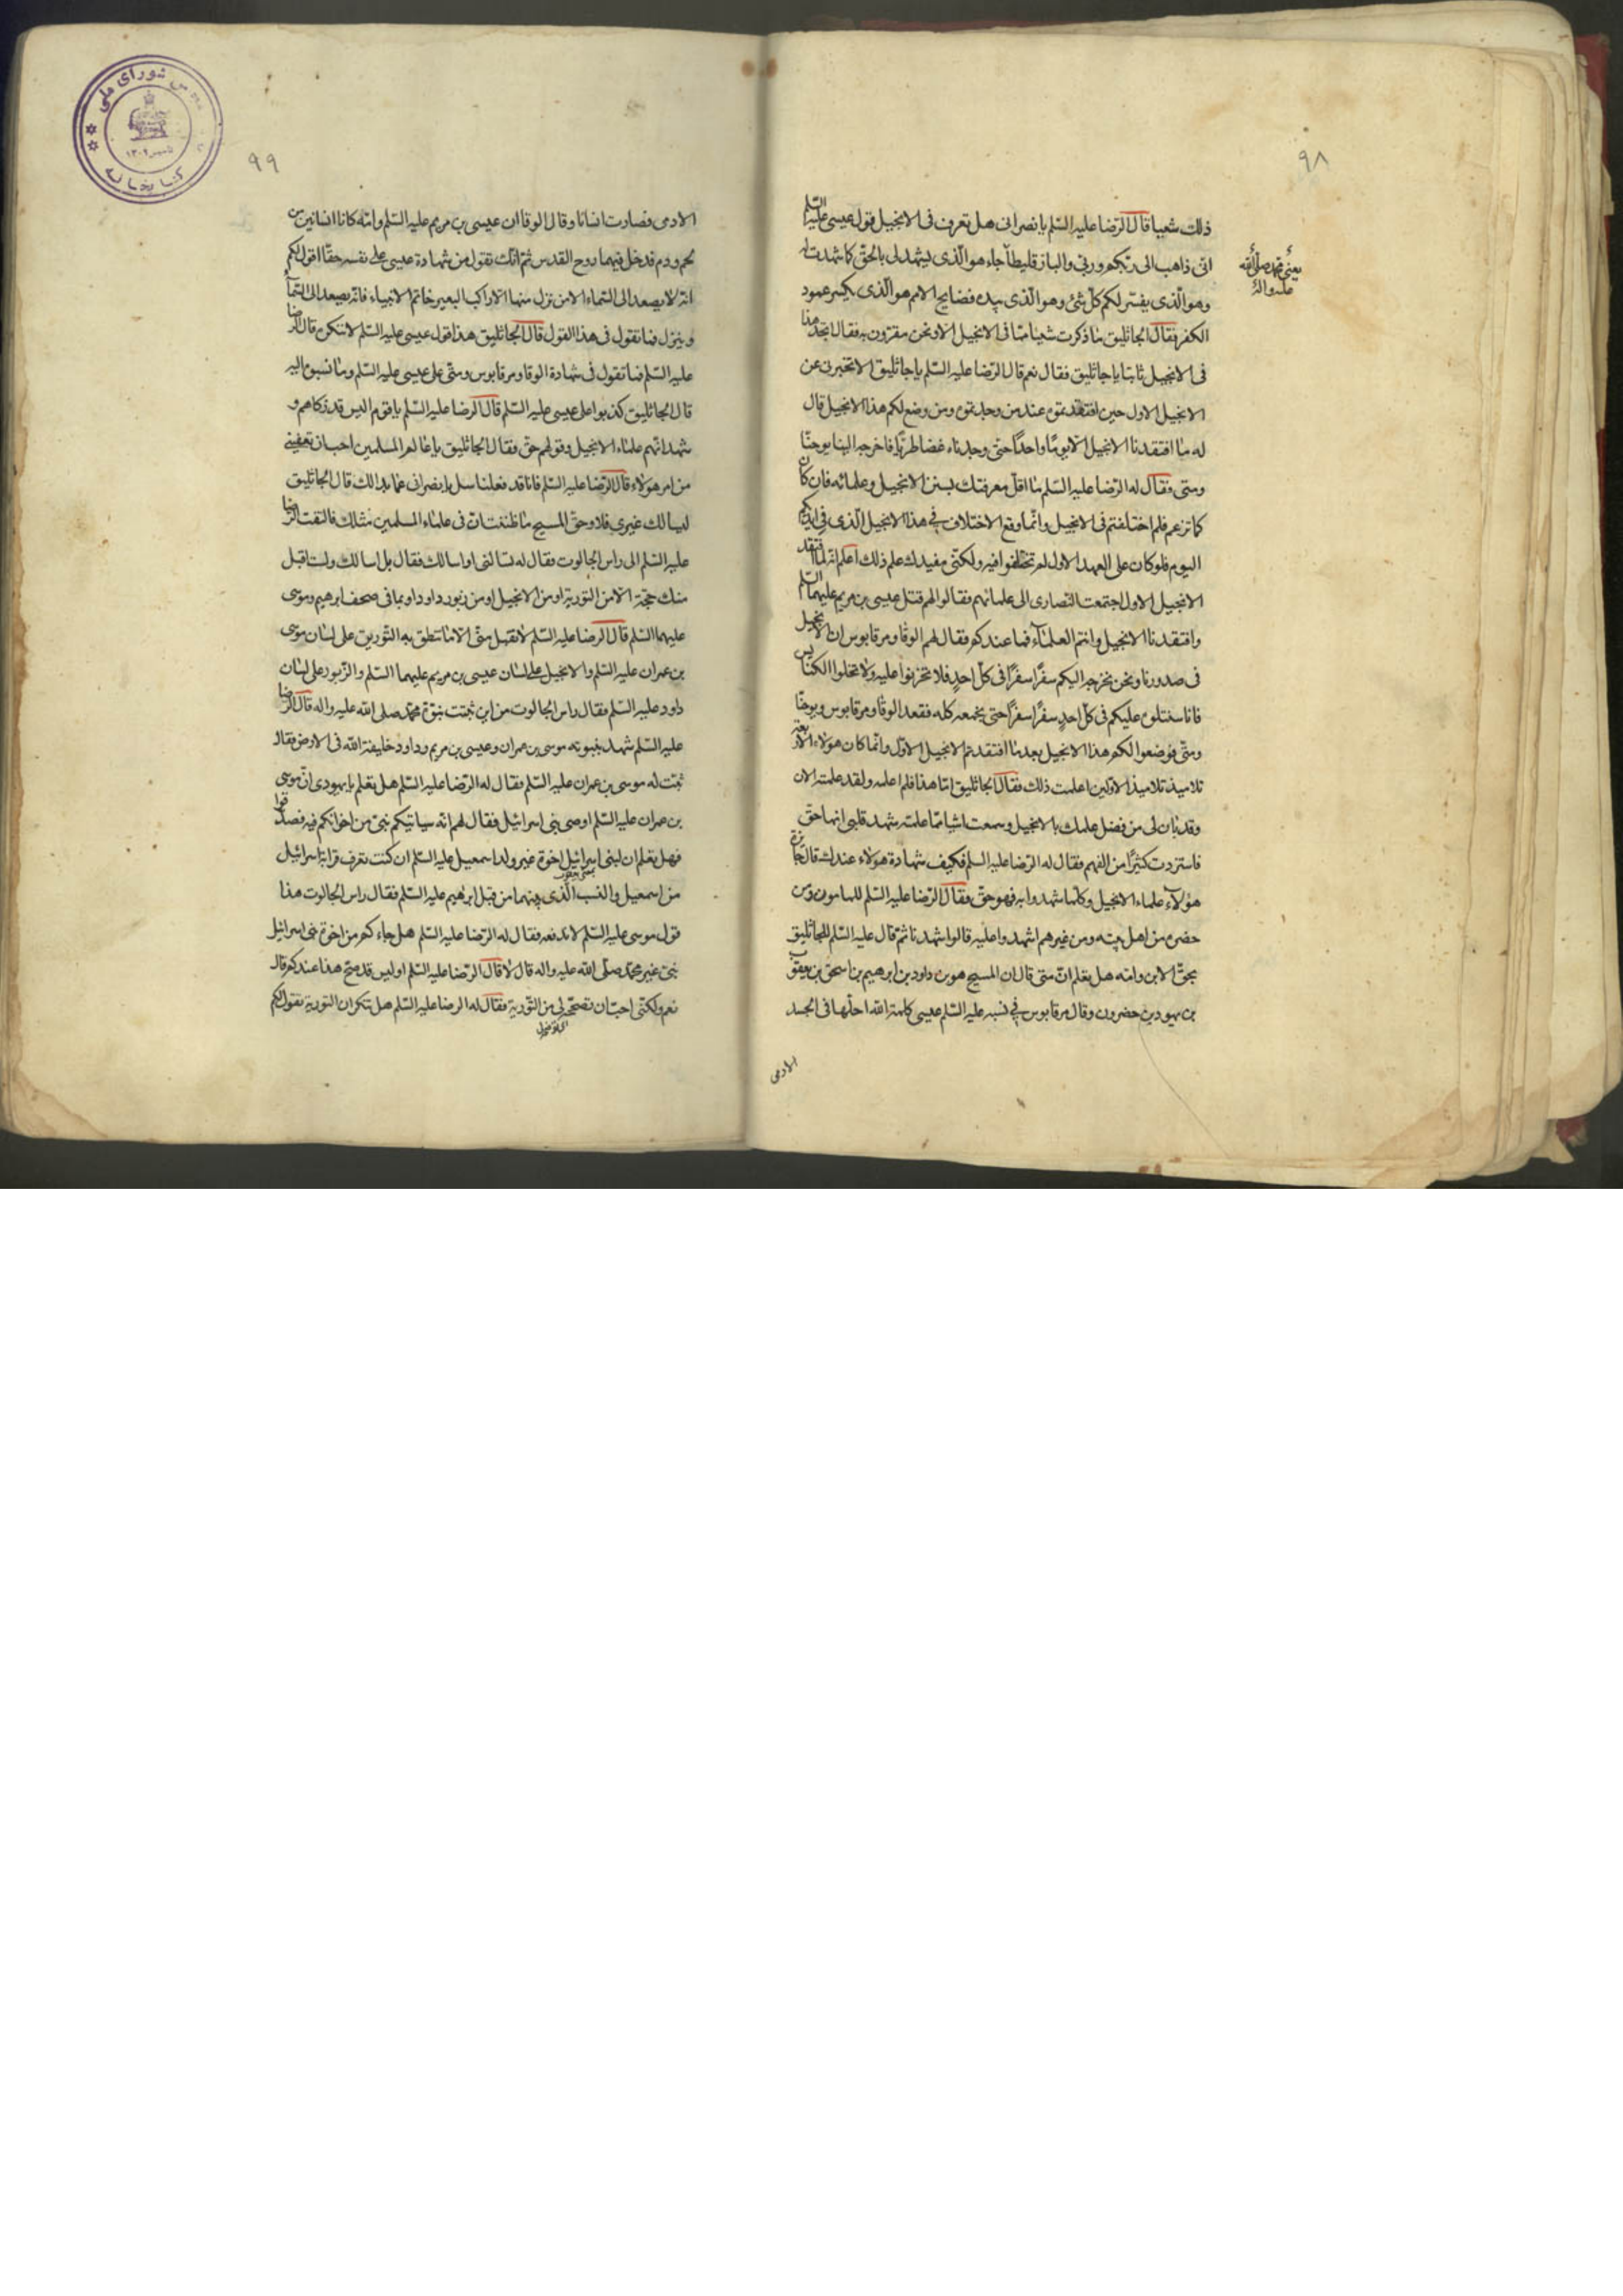 ٩٨
ذلك شعيا قال الرضا عليه السّلم يا نصرانى هل تعرف فى الانجيل قول عيسى عليه السّلم
انى ذاهب الى ربّكم وربى والبارقليطا جاء هو الّذى يشهد لى بالحقّ كما شهدت له
يعنى محمد صلى الله عليه واله
وهو الّذى يفسّر لكم كلّ شئ وهو الّذى يبدء فضايح الامم هو الّذى يكسر عمود
الكفر فقال الجاثليق ما ذكرت شيئا ممّا فى الانجيل الا ونحن مقرّون به فقال اتجد هذا
فى الانجيل ثابتا يا جاثليق فقال نعم قال الرّضا عليه السّلم يا جاثليق الا تخبرنى عن
الانجيل الاول حين افتقدتموه عند من وجدتموه ومن وضع لكم هذا الانجيل قال
له ما افتقدنا الانجيل الّا يومًا واحدًا حتى وجدناه غضا طريّا فاخرجه الينا يوحنّا
ومتى فقال له الرّضا عليه السّلم ما اقلّ معرفتك بسنن الانجيل وعلمائه فان كان
كما تزعم فلم اختلفتم فى الانجيل وانّما وقع الاختلاف فى هذا الانجيل الّذى فى ايديكم
اليوم فلو كان على العهد الاول لم تختلفوا فيه ولكنّى مفيدك علم ذلك اعلم انّه لمّا افتقد
الانجيل الاول اجتمعت النّصارى الى علمائهم فقالوا لهم قتل عيسى بن مريم عليهما السّلم
وافتقدنا الانجيل وانتم العلمآء فما عندكم فقال لهم الوقا ومرقابوس ان الانجيل
فى صدورنا ونحن نخرجه اليكم سفرًا سفرًا فى كلّ احدٍ فلا تحزنوا عليه ولا تخلوا الكنايس
فانا سنتلوه عليكم فى كلّ احدٍ سفرًا سفرًا حتى نجمعه كله فقعد الوقا ومرقابوس ويوحنّا
ومتّى فوضعوا لكم هذا الانجيل بعد ما افتقدتم الانجيل الاوّل وانّما كان هولاء الاربعة
تلاميذ تلاميذ الاوّلين اعلمت ذلك فقال الجاثليق امّا هذا فلم اعلمه ولقد علمته الان
وقد بان لى من فضل علمك بالانجيل وسمعت اشيا ممّا علمته شهد قلبى انها حقّ
فاستزدت كثيرًا من الفهم فقال له الرّضا عليه السلم فكيف شهادة هولاء عندك قال جائزة
هؤلآء علماء الانجيل وكلّما شهدوا به فهو حقّ فقال الرّضا عليه السّلم للمامون ومن
حضره من اهل بيته ومن غيرهم اشهدوا عليه قالوا شهدنا ثم قال عليه السّلم للجاثليق
بحقّ الابن وامّه هل تعلم انّ متى قال ان المسيح هو بن داود بن ابرهيم بن اسحق بن يعقوب
بن يهود بن حضرون وقال مرقابوس فى نسبه عليه السّلم عيسى كلمة الله احلّها فى الجسد
الادمى
٩٩
الادمى فصارت انسانا وقال الوقا ان عيسى بن مريم عليه السّلم وامّه كانا انسانين من
لحم ودم فدخل فيهما روح القدس ثمّ انّك تقول من شهادة عيسى على نفسه حقّا اقول لكم
انّه لا يصعد الى السّماء الا من نزل منها الّا راكب البعير خاتم الانبياء فانّه يصعد الى السّمآء
وينزل فما تقول فى هذا القول قال الجاثليق هذا قول عيسى عليه السّلم لا ننكره قال الرضا
عليه السّلم فما تقول فى شهادة الوقا ومرقابوس ومتّى على عيسى عليه السّلم وما نسبوه اليه
قال الجاثليق كذبوا على عيسى عليه السّلم قال الرضا عليه السّلم يا قوم اليس قد زكاهم و
شهد انّهم علماء الانجيل وقولهم حقّ فقال الجاثليق يا عالم المسلمين احب ان تعفينى
من امر هولاء قال الرّضا عليه السّلم فانا قد فعلنا سل يا نصرانى عمّا بدا لك قال الجاثليق
ليسالك غيرى فلا وحقّ المسيح ما ظننت انّ فى علماء المسلمين مثلك فالتفت الرّضا
عليه السّلم الى راس الجالوت فقال له تسالنى او اسالك فقال بل اسالك ولست اقبل
منك حجّة الّا من التورية او من الانجيل او من زبور داود او بما فى صحف ابرهيم وموسى
عليهما السّلم قال الرضا عليه السّلم لا تقبل منّى الّا ما تنطق به التّورية على لسان موسى
بن عمران عليه السّلم والانجيل على لسان عيسى بن مريم عليهما السّلم والزّبور على لسان
داود عليه السّلم فقال راس الجالوت من اين تثبت نبوّة محمّد صلى الله عليه واله قال الرّضا
عليه السّلم شهد بنبوته موسى بن عمران وعيسى بن مريم وداود خليفة الله فى الارض فقال
ثبت له موسى بن عمران عليه السّلم فقال له الرّضا عليه السّلم هل تعلم يا يهودى انّ موسى
بن عمران عليه السّلم اوصى بنى اسرائيل فقال لهم انه سياتيكم نبىّ من اخوانكم فيه فصدّقوا
فهل تعلم ان لبنى اسرائيل اخوة غير ولد اسمعيل عليه السّلم ان كنت تعرف قرابة اسرائيل
من اسمعيل والنسب الّذى بينهما من قبل ابرهيم عليه السّلم فقال راس الجالوت هذا
قول موسى عليه السّلم لا ندفعه فقال له الرّضا عليه السّلم هل جاءكم من اخوة بنى اسرائيل
نبىّ غير محمّد صلّى الله عليه واله قال لا قال الرّضا عليه السّلم اوليس قد صحّ هذا عندكم قال
نعم ولكنّى احبّ ان تصحّحه لى من التّورية فقال له الرضا عليه السّلم هل تنكر ان التورية تقول لكم
شوراى ملى
كتابخانه